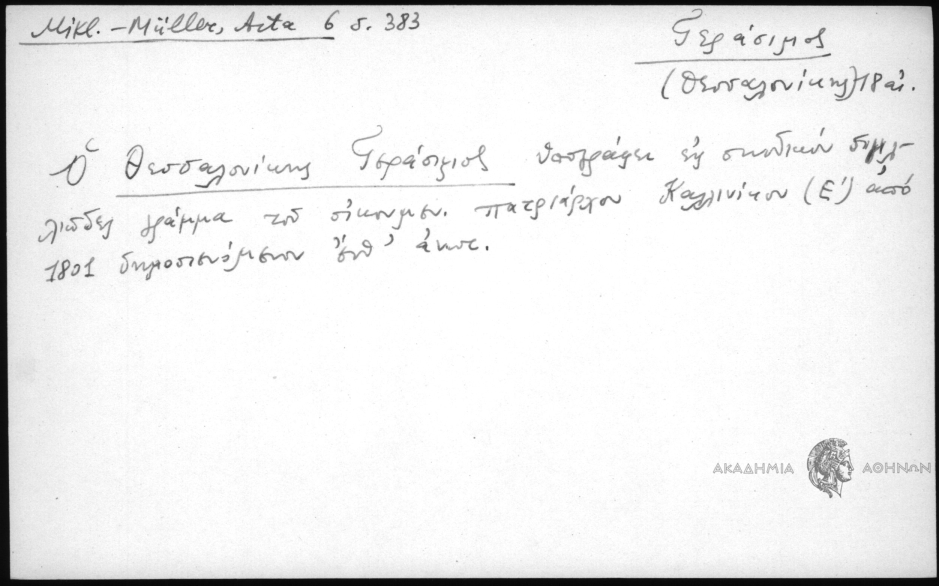 Mikl.–Müller, Acta 6 σ. 383
Γεράσιμος
(Θεσσαλονίκης) 18 αἰ.
Ὁ Θεσσαλονίκης Γεράσιμος ὑπογράφει εἰς συνοδικὸν σιγιλ-
λιῶδες γράμμα τοῦ οἰκουμεν. πατριάρχου Καλλινίκου (Ε΄) ἀπὸ
1801 δημοσιευόμενον ἐνθ᾽ ἀνωτ.
ΑΚΑΔΗΜΙΑ ΑΘΗΝΩΝ